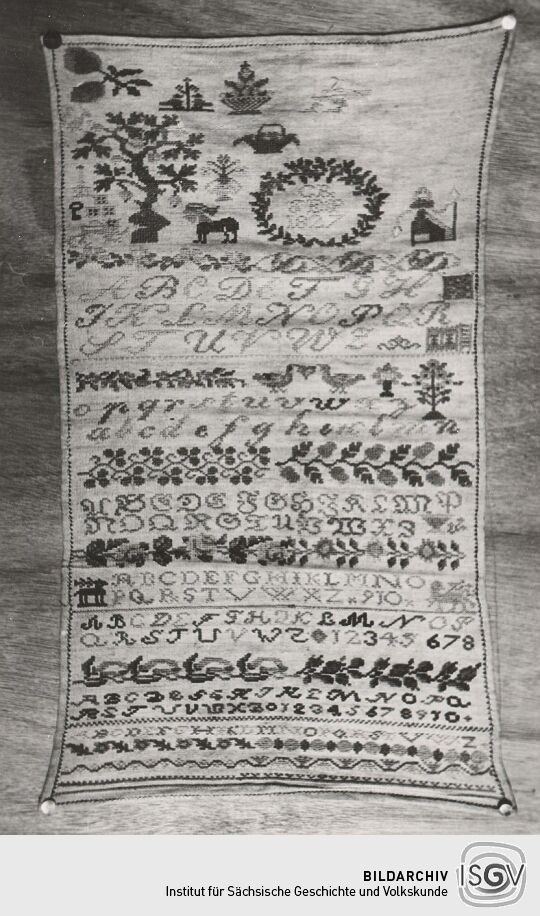 A B C D E F G H
I K L M N O P Q R
S T U V W Z
o p q r s t u v w x y z
a b c d e f g h i k l m n
A B C D E F G H I K L M P
N O Q R S T U V W X Y Z
A B C D E F G H I K L M N O
P Q R S T V W X Z
A B C D E F T H I K L M N O P
Q R S T U V W Z 1 2 3 4 5 6 7 8
A B C D E F G H I K L M N O P Q
R S T U V W X Z 0 1 2 3 4 5 6 7 8 9 10
BILDARCHIV
Institut für Sächsische Geschichte und Volkskunde
ISGV